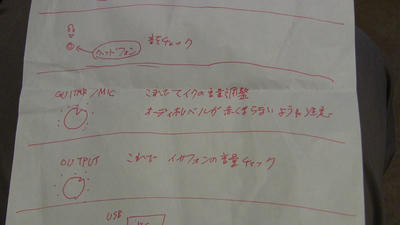 ヘッドフォン
音チェック
GUITAR/MIC これでマイクの音量調整
オーディオレベルが赤くならないように注意。
OUTPUT これで イヤフォンの音量チェック
USB